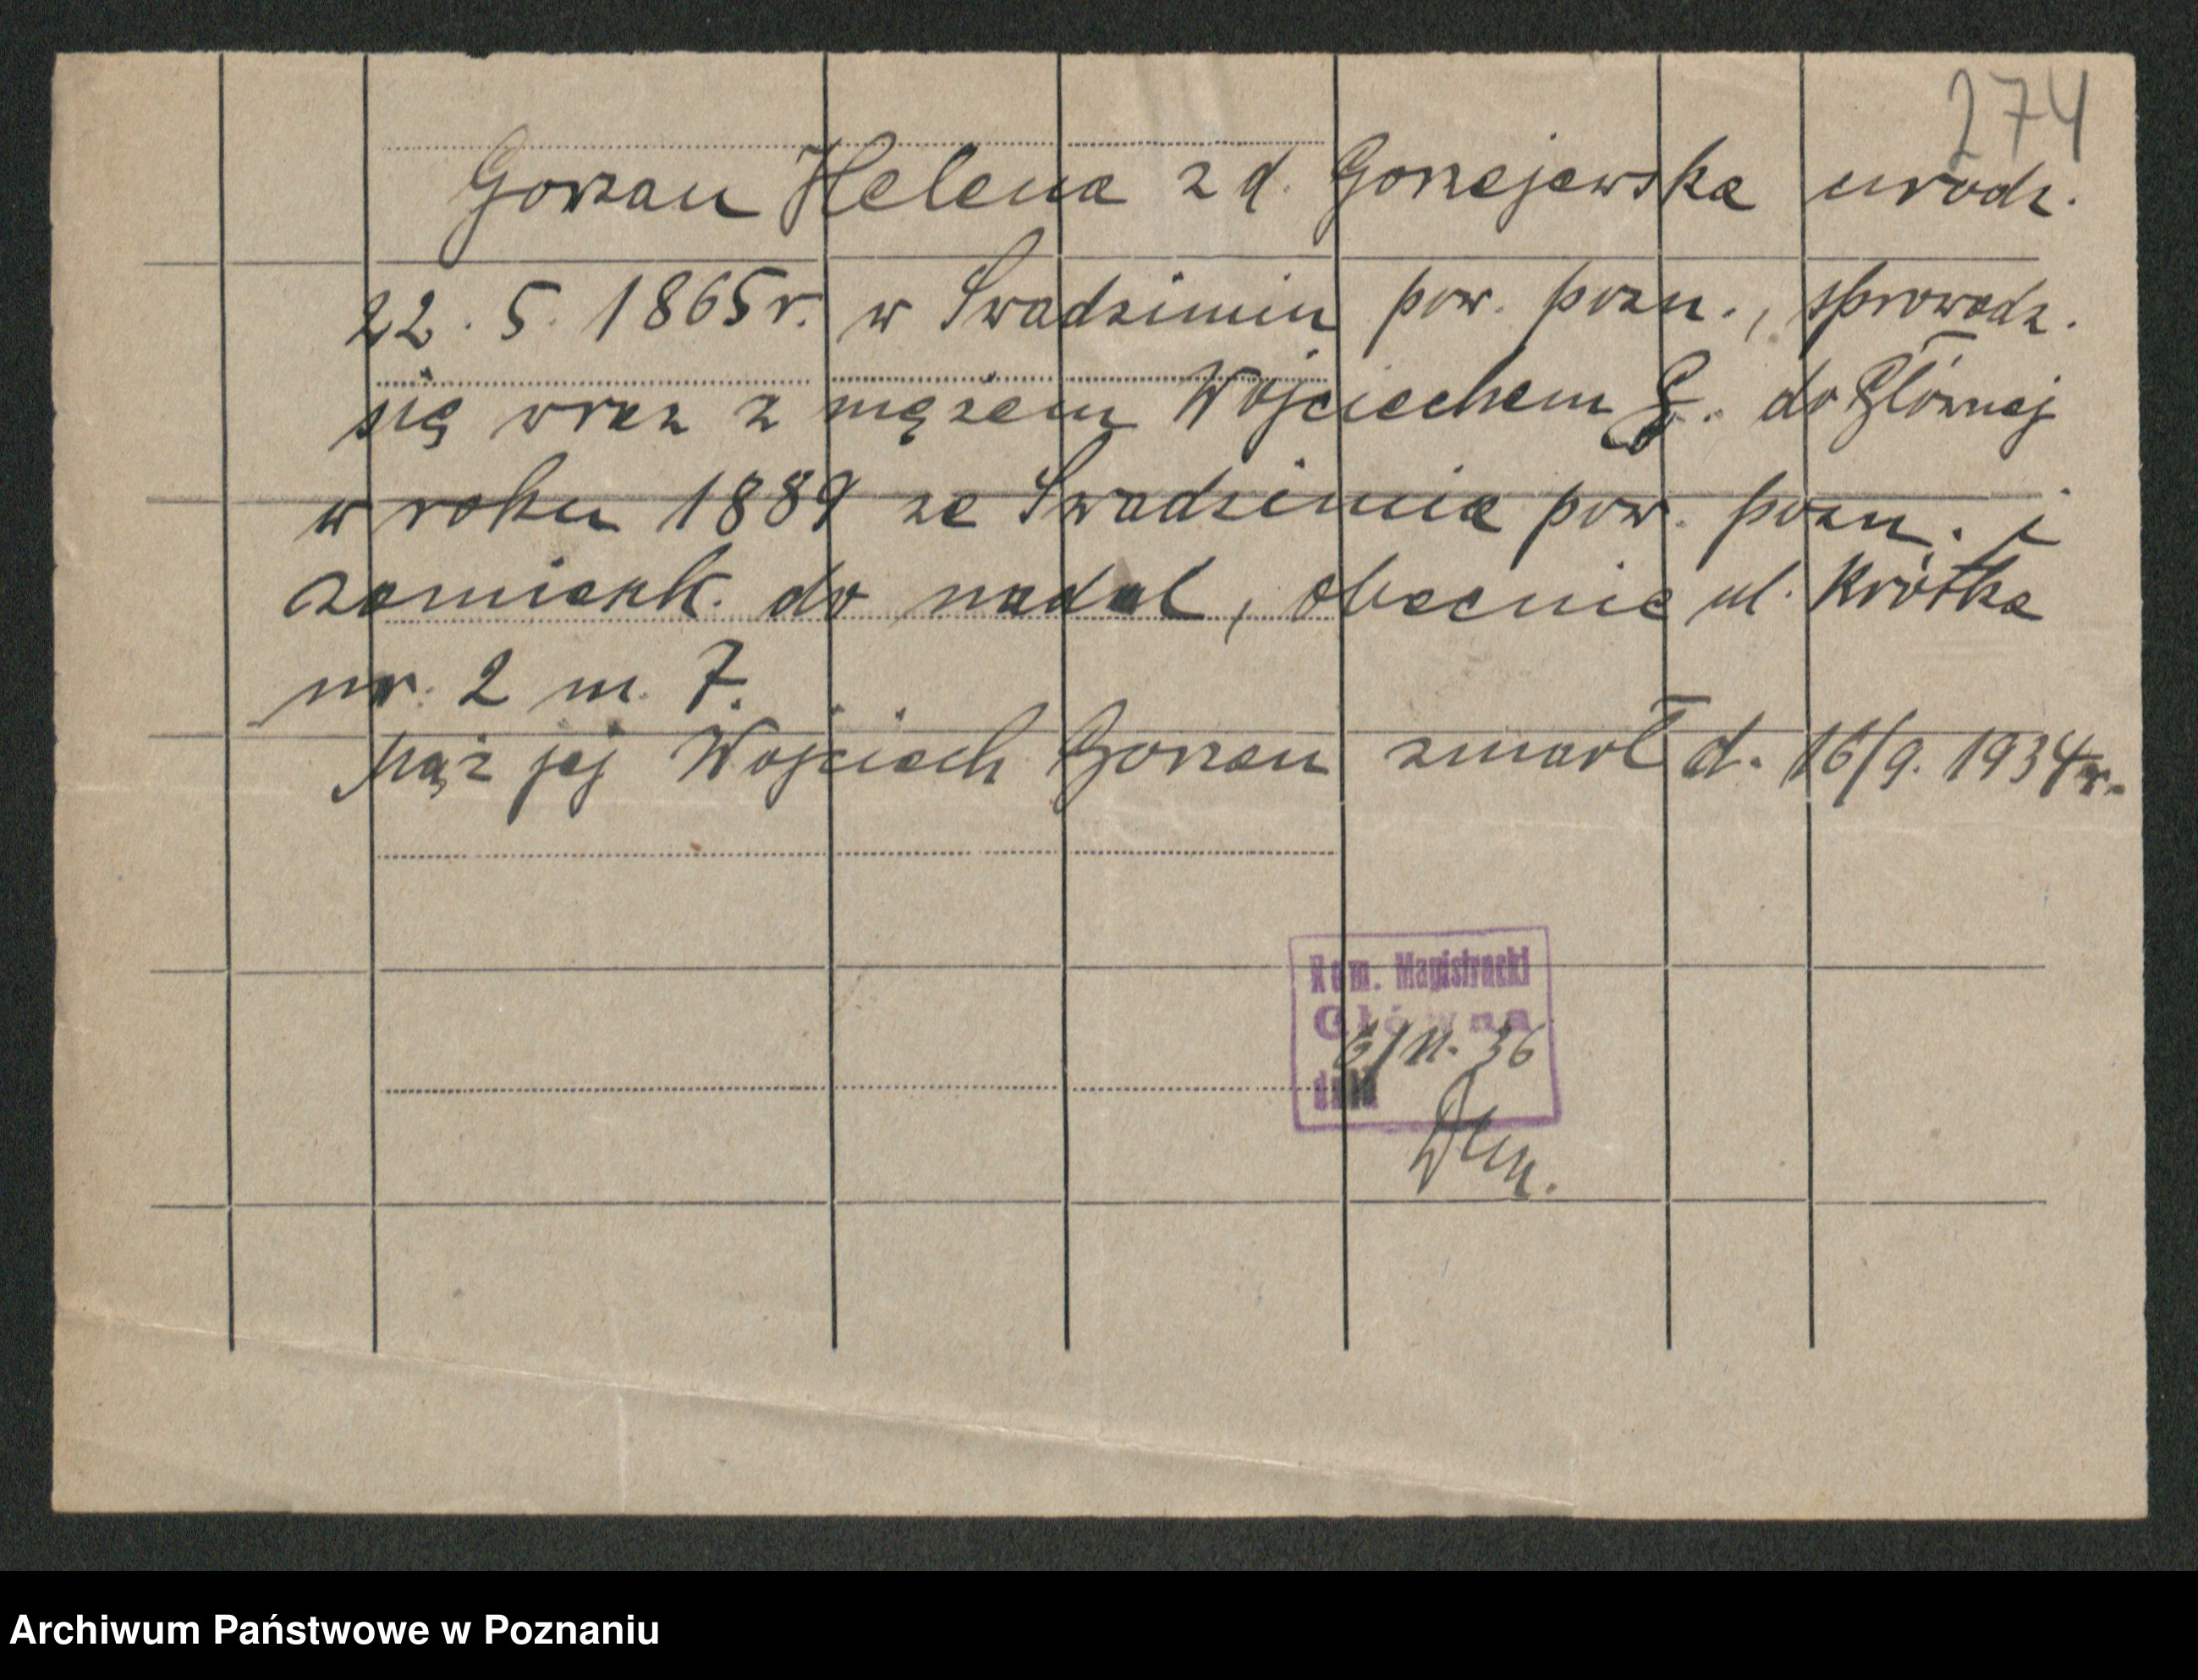 274
Gorzan Helena z d. Gorzejewska urodz.
22. 5. 1865 r. w Swadzimiu pow. pozn., sprowadz.
się wraz z mężem Wojciechem G. do Głównej
w roku 1889 ze Swadzimia pow. pozn. i
zamieszk. do nadal, obecnie ul. Krótka
nr. 2 m. 7.
Mąż jej Wojciech Gorzan zmarł d. 16/9. 1934 r.
Kom. Magistracki
Główna
36
Archiwum Państwowe w Poznaniu